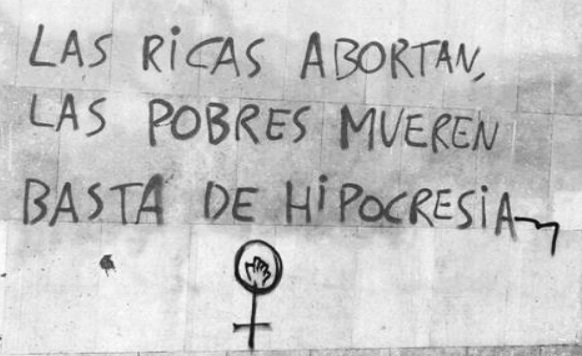 LAS RiCAS ABORTAN,
LAS POBRES MUEREN
BASTA DE HiPOCRESiA